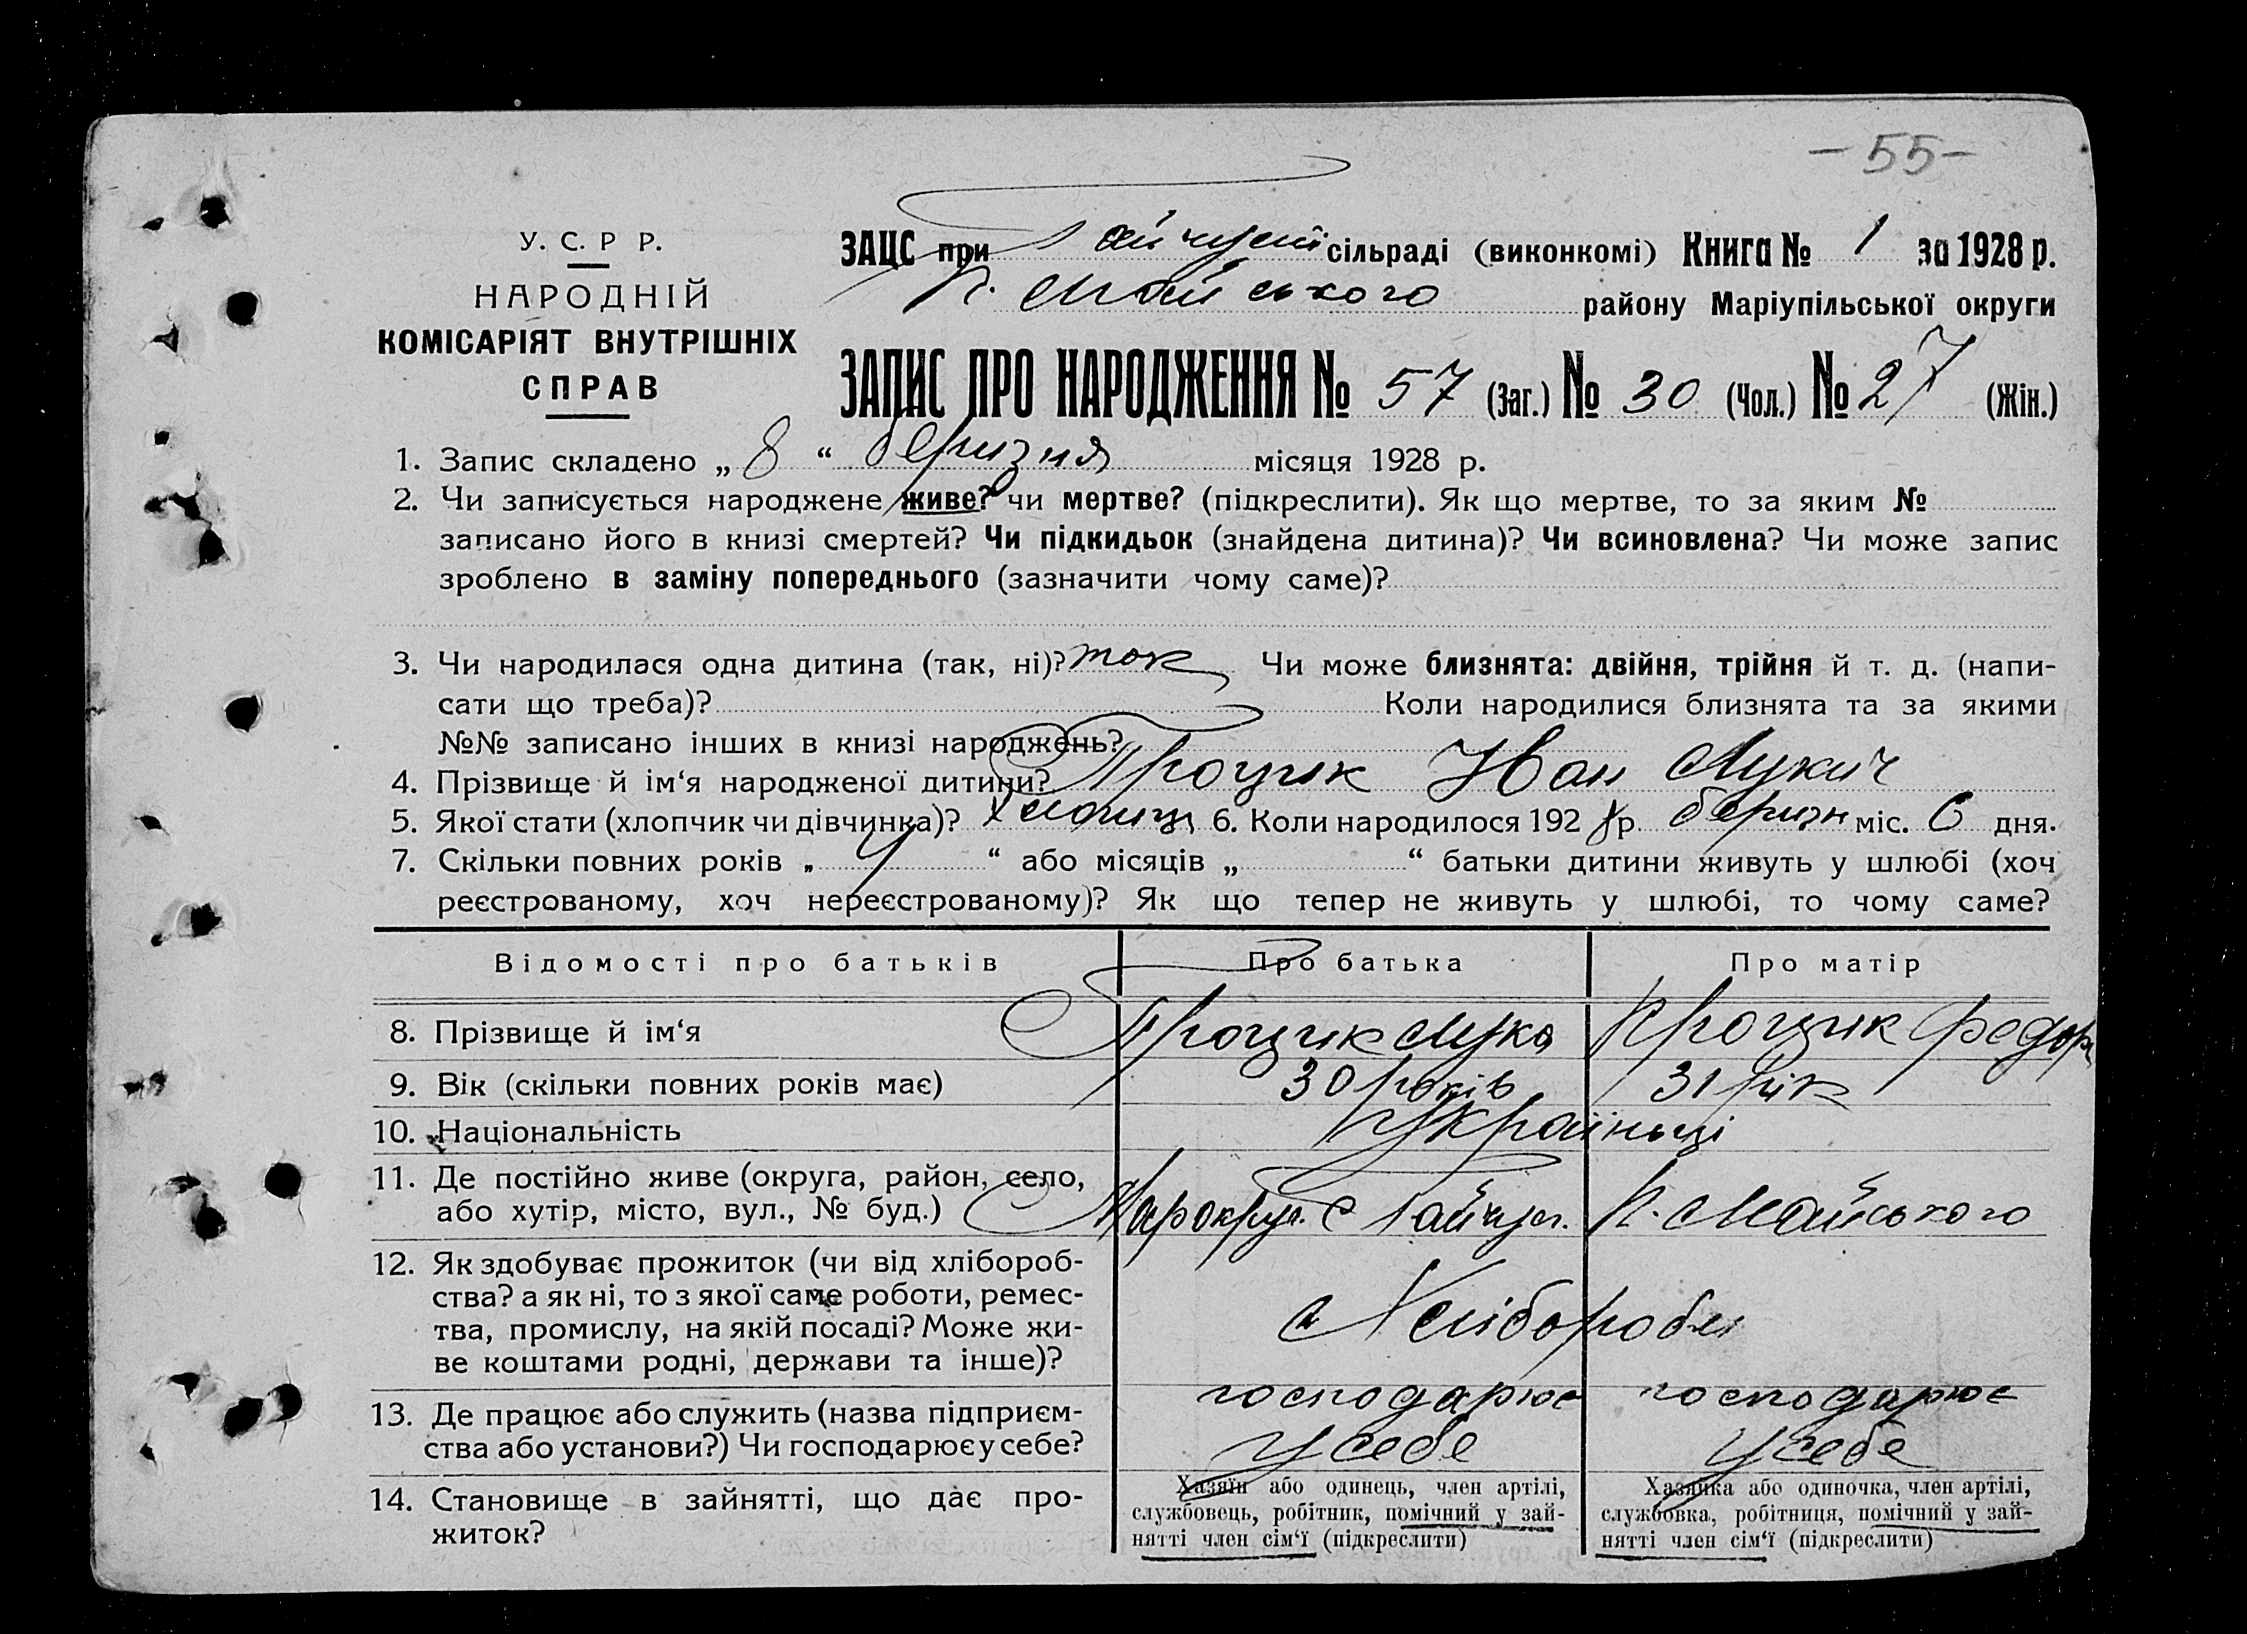 - 55 -
У. С. Р Р.
НАРОДНІЙ
КОМІСАРІЯТ ВНУТРІШНІХ
СПРАВ
ЗАЦС при Гайчул сільраді (виконкомі) Книга № 1 за 1928 р.
П. Майського району Маріупільської округи
ЗАПИС ПРО НАРОДЖЕННЯ № 57 (Заг.) № 30 (Чол.) № 27 (Жін.)
1. Запис складено „ 8 “ беризня місяця 1928 р.
2. Чи записується народжене живе? чи мертве? (підкреслити). Як що мертве, то за яким №
записано його в книзі смертей? Чи підкидьок (знайдена дитина)? Чи всиновлена? Чи може запис
зроблено в заміну попереднього (зазначити чому саме)?
3. Чи народилася одна дитина (так, ні)? так Чи може близнята: двійня, трійня й т. д. (напи-
сати що треба)? Коли народилися близнята та за якими
№№ записано інших в книзі народжень?
4. Прізвище й ім‘я народженої дитини? Процик Іван Лукич
5. Якої стати (хлопчик чи дівчинка)? хлопиць 6. Коли народилося 192 8 р. беризн міс. 6 дня.
7. Скільки повних років „ “ або місяців „ “ батьки дитини живуть у шлюбі (хоч
реєстрованому, хоч нереєстрованому)? Як що тепер не живуть у шлюбі, то чому саме?
Відомості про батьків Про батька Про матір
8. Прізвище й ім‘я Процик Лука Процик Федор
9. Вік (скільки повних років має) 30 років 31 рік
10. Національність Україньці
11. Де постійно живе (округа, район, село,
або хутір, місто, вул., № буд.) Марокруг. с Гайчул. П. Майського
12. Як здобуває прожиток (чи від хлібороб-
ства? а як ні, то з якої саме роботи, ремес-
тва, промислу, на якій посаді? Може жи-
ве коштами родні, держави та інше)?
Хлібороби
13. Де працює або служить (назва підприєм-
ства або установи?) Чи господарює у себе?
господарює у себе господарює у себе
14. Становище в зайнятті, що дає про-
житок?
Хазяїн або одинець, член артілі,
службовець, робітник, помічний у зай-
нятті член сім‘ї (підкреслити)
Хазяйка або одиночка, член артілі,
службовка, робітниця, помічний у зай-
нятті член сім‘ї (підкреслити)